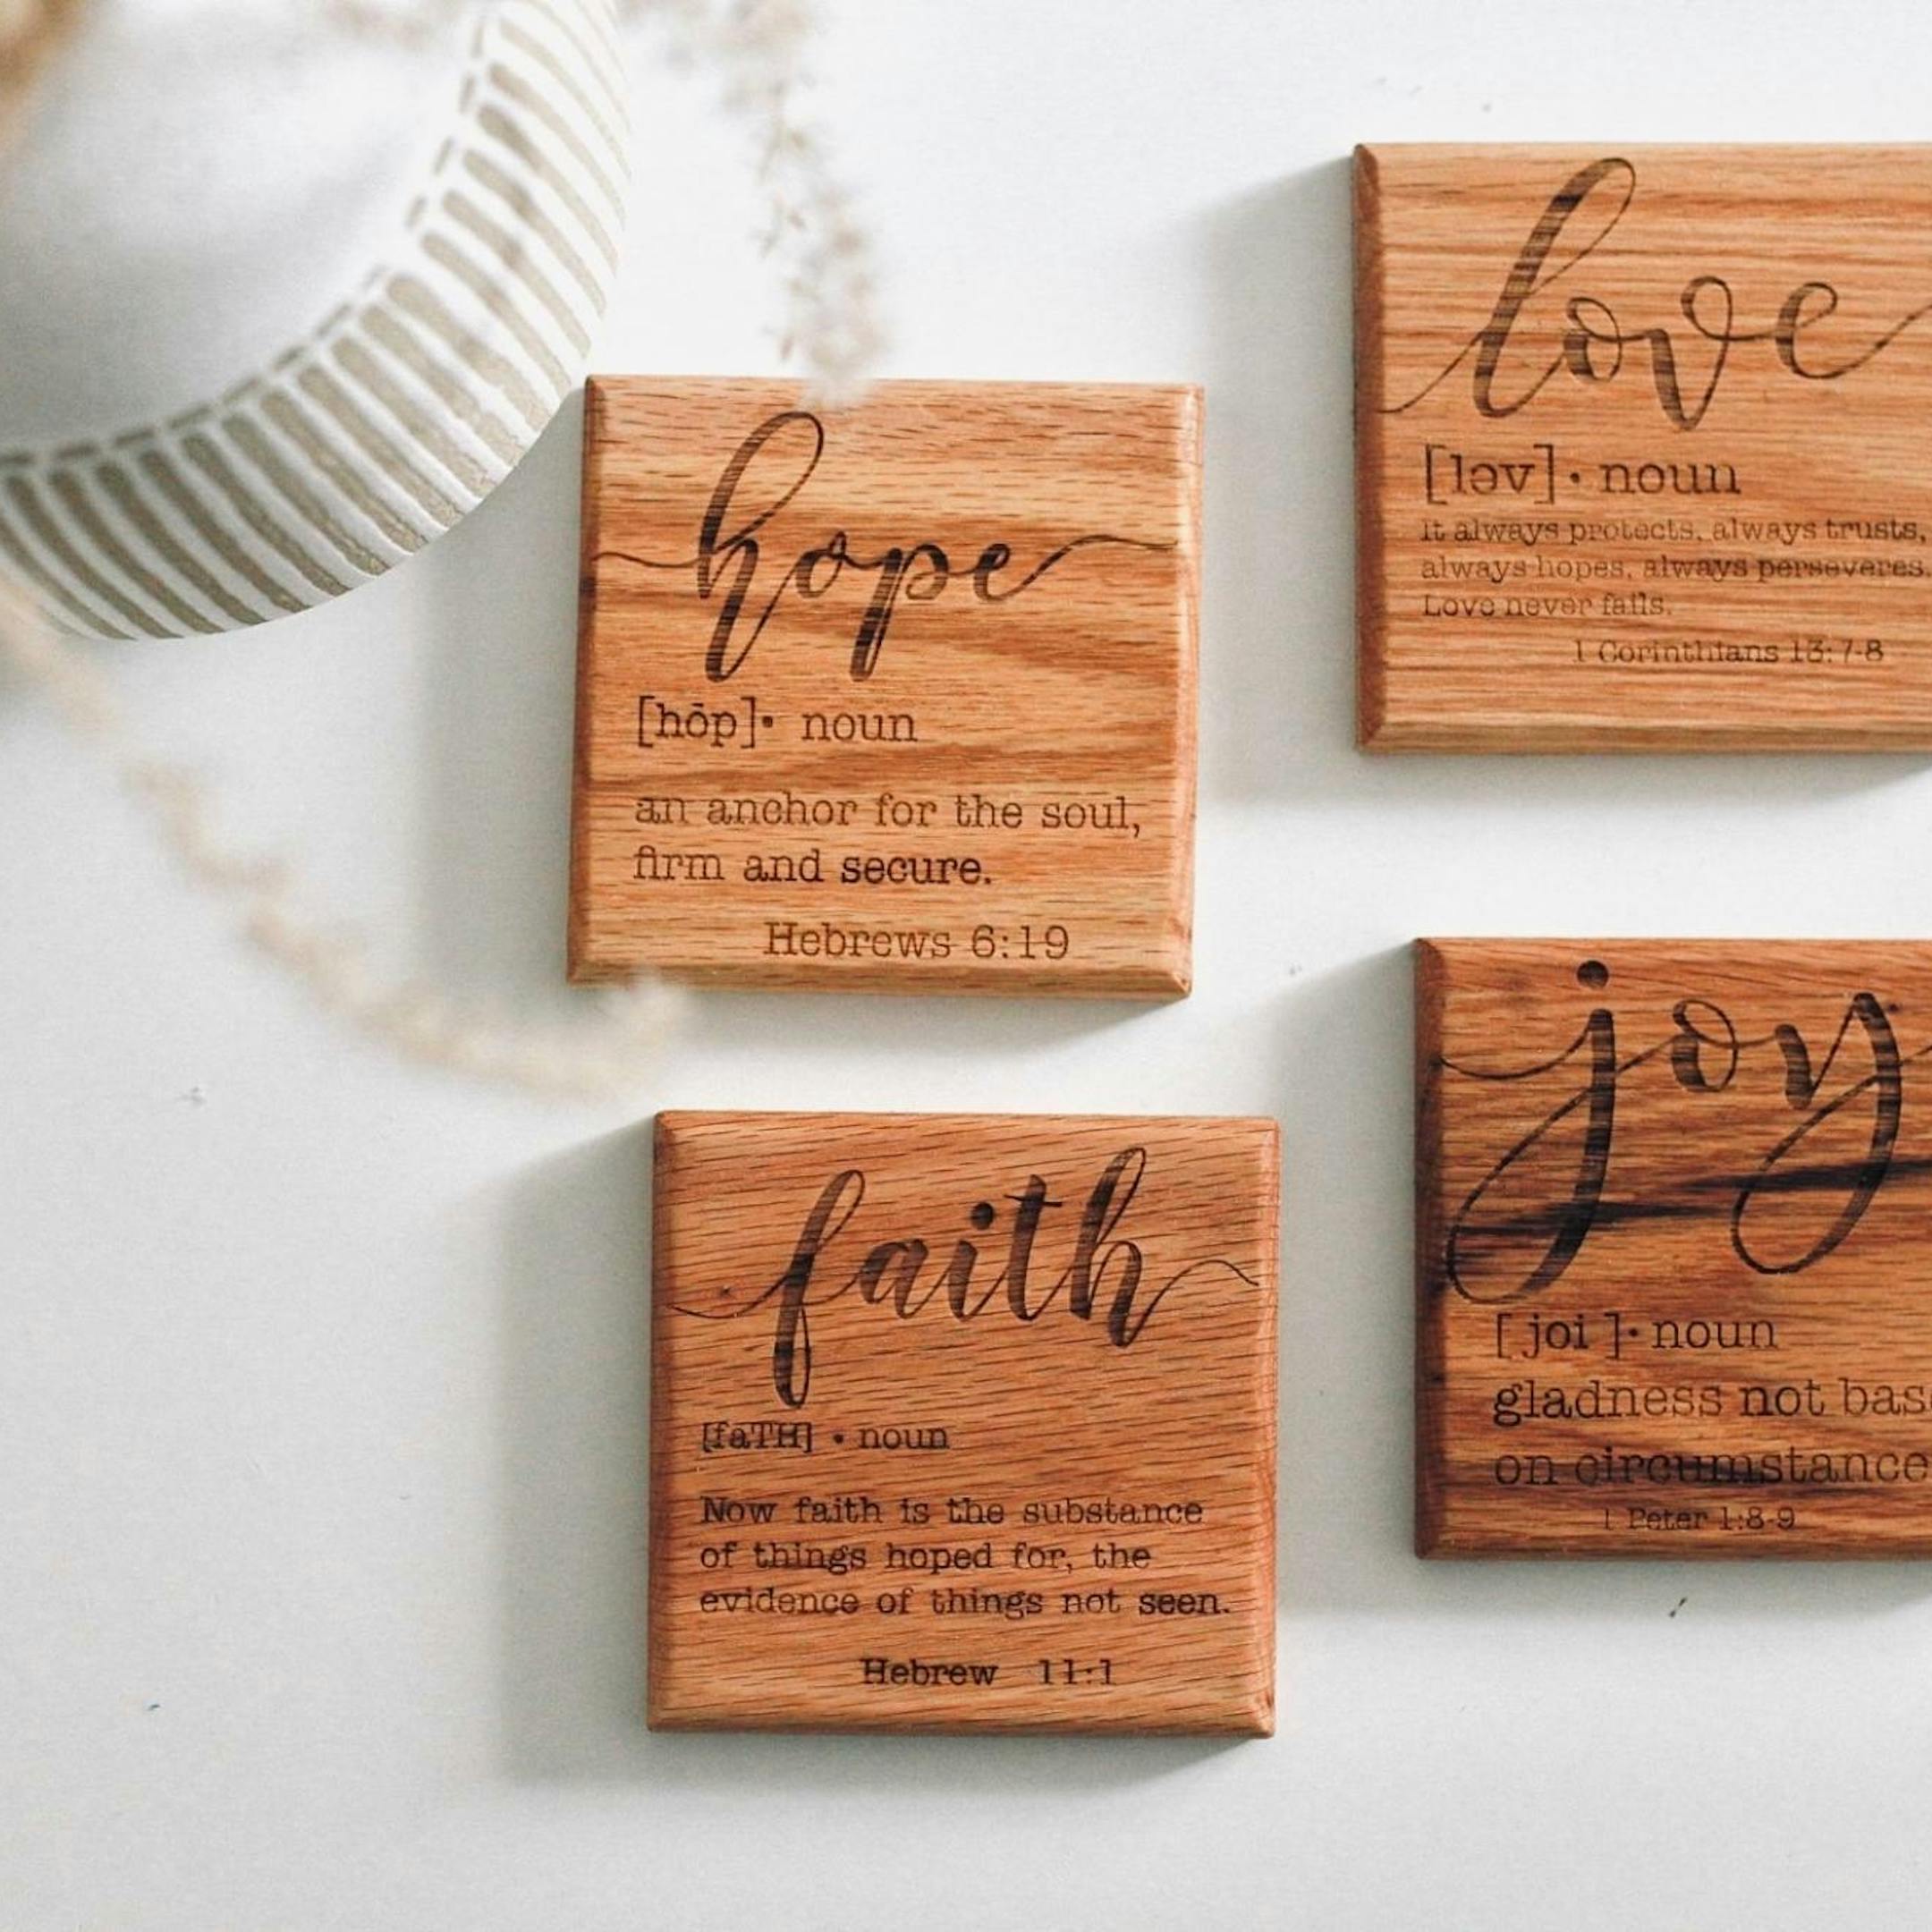 hope
[hōp]• noun
an anchor for the soul,
firm and secure.
Hebrews 6:19
love
[ləv]• noun
It always protects, always trusts,
always hopes, always perseveres.
Love never fails.
1 Corinthians 13: 7-8
faith
[faTH] • noun
Now faith is the substance
of things hoped for, the
evidence of things not seen.
Hebrew 11:1
joy
[ joi ]• noun
gladness not
on circumstance
1 Peter 1:8-9